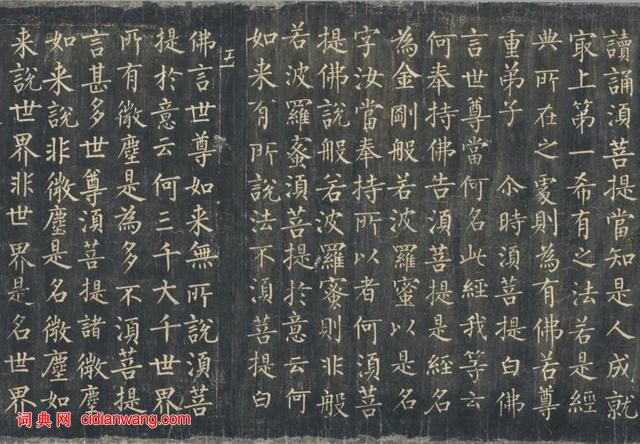 讀誦須菩提當知是人成就
冣上第一希有之法若是經
典所在之處則為有佛若尊
重弟子 尒時須菩提白佛
言世尊當何名此經我等云
何奉持佛告須菩提是經名
為金剛般若波羅蜜以是名
字汝當奉持所以者何須菩
提佛說般若波羅蜜則非般
若波羅蜜須菩提於意云何
如来有所說法不須菩提白
佛言世尊如来無所說須菩
提於意云何三千大千世界
所有微塵是為多不須菩提
言甚多世尊須菩提諸微塵
如来說非微塵是名微塵如
来說世界非世界是名世界
词典网 cidianwang.com